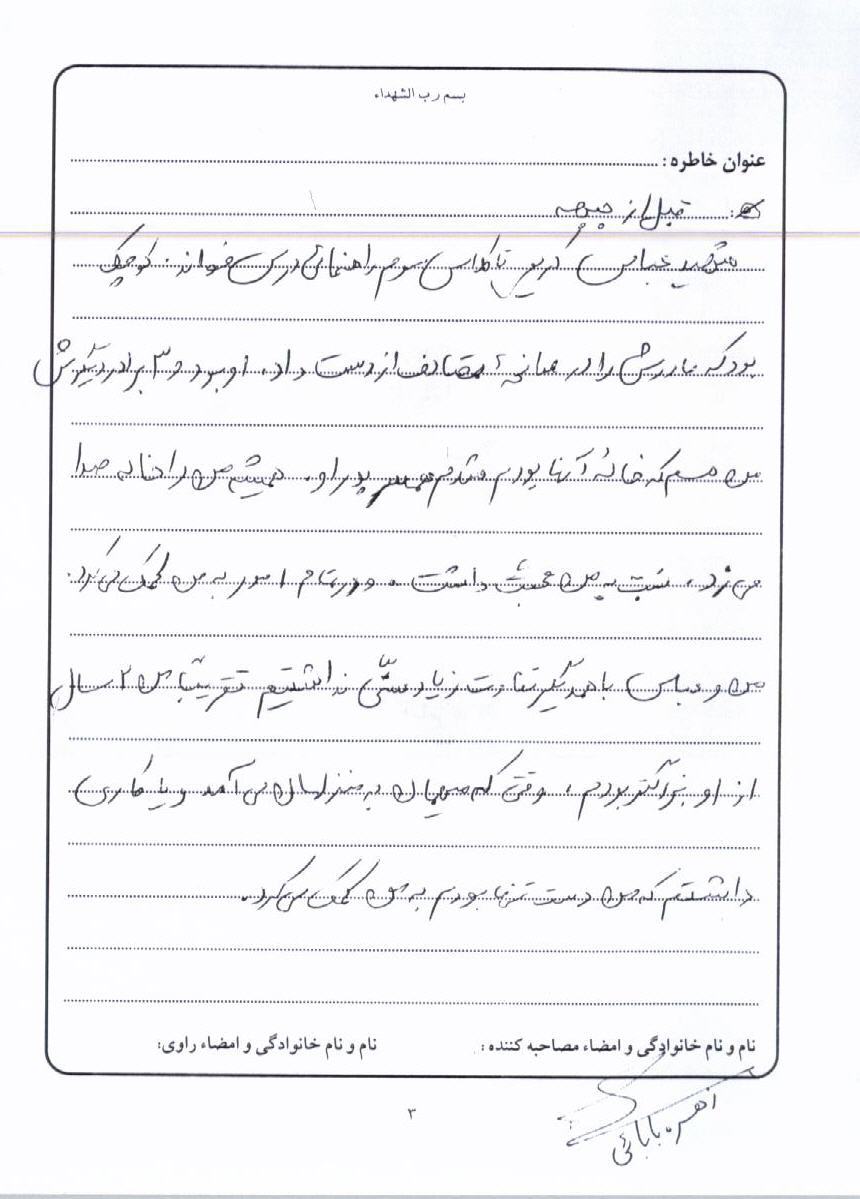 بسم رب الشهداء
عنوان خاطره :
قبل از جبهه
شهید عباس کریمی تا کلاس سوم راهنمائی درس خواند. کوچک
بود که مادرش را در سانحهٔ تصادف از دست داد. او بود و ۳ برادر دیگرش
من هم که خانهٔ آنها بودم شدم همسر پدر او. همیشه من را خاله صدا
می زد، نسبت به من محبت داشت. و در تمام امور به من کمک می کرد.
من و عباس با همدیگر تفاوت زیاد سنّی نداشتیم تقریباً من ۲ سال
از او بزرگتر بودم، وقتی که میهمان به منزلمان می آمد و یا کاری
داشتم که من دست تنها بودم به من کمک می کرد.
نام و نام خانوادگی و امضاء مصاحبه کننده :
نام و نام خانوادگی و امضاء راوی:
زهره بابائی
۳